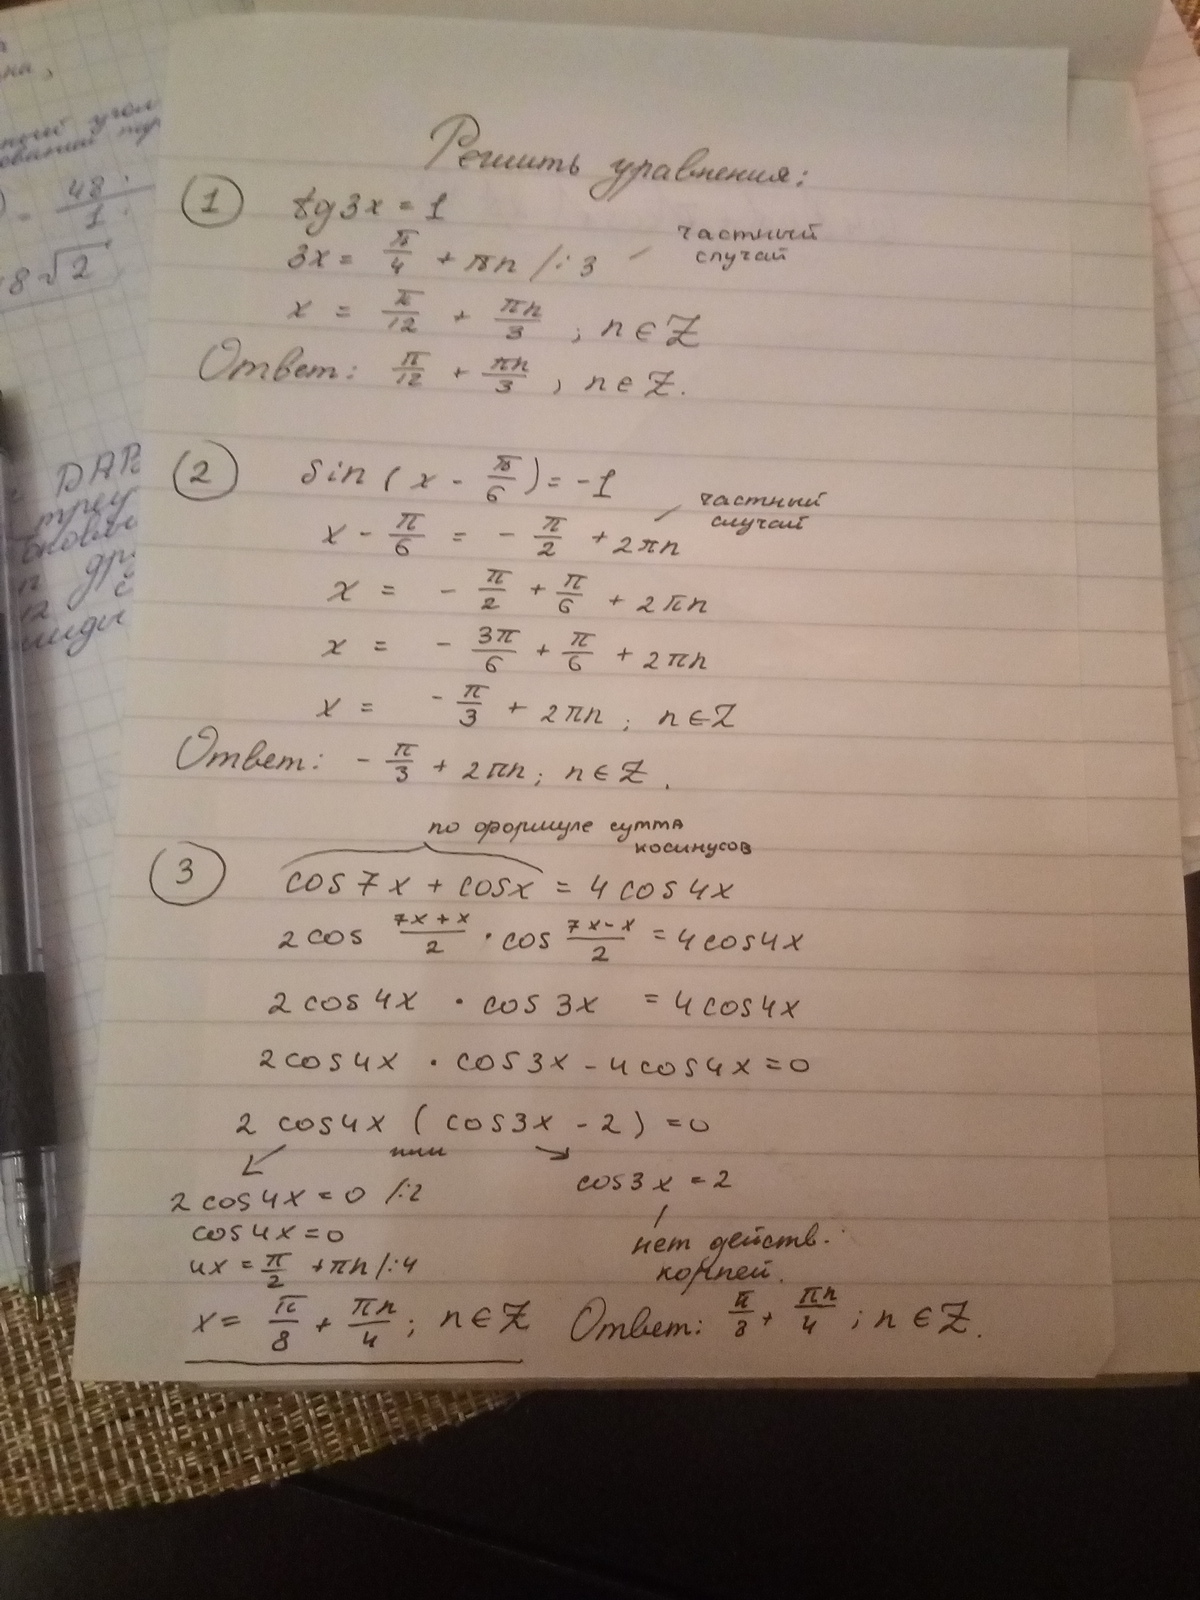 Решить уравнения:
1 tg3x = 1
3x = π/4 + πn /:3 частный случай
x = π/12 + πn/3 ; n ∈ Z
Ответ: π/12 + πn/3 , n ∈ Z.
2 sin( x - π/6 ) = -1
x - π/6 = - π/2 + 2πn частный случай
x = - π/2 + π/6 + 2πn
x = - 3π/6 + π/6 + 2πn
x = - π/3 + 2πn ; n ∈ Z
Ответ: - π/3 + 2πn; n ∈ Z.
по формуле сумма
косинусов
3 cos7x + cosx = 4cos4x
2cos 7x+x/2 · cos 7x-x/2 = 4cos4x
2cos4x · cos3x = 4cos4x
2cos4x · cos3x - 4cos4x = 0
2 cos4x ( cos3x - 2 ) = 0
или
2cos4x = 0 /:2 cos3x = 2
cos4x = 0 нет действ.
4x = π/2 + πn /:4 корней.
x = π/8 + πn/4 ; n ∈ Z Ответ: π/8 + πn/4 ; n ∈ Z.
48
1
8√2
DAB